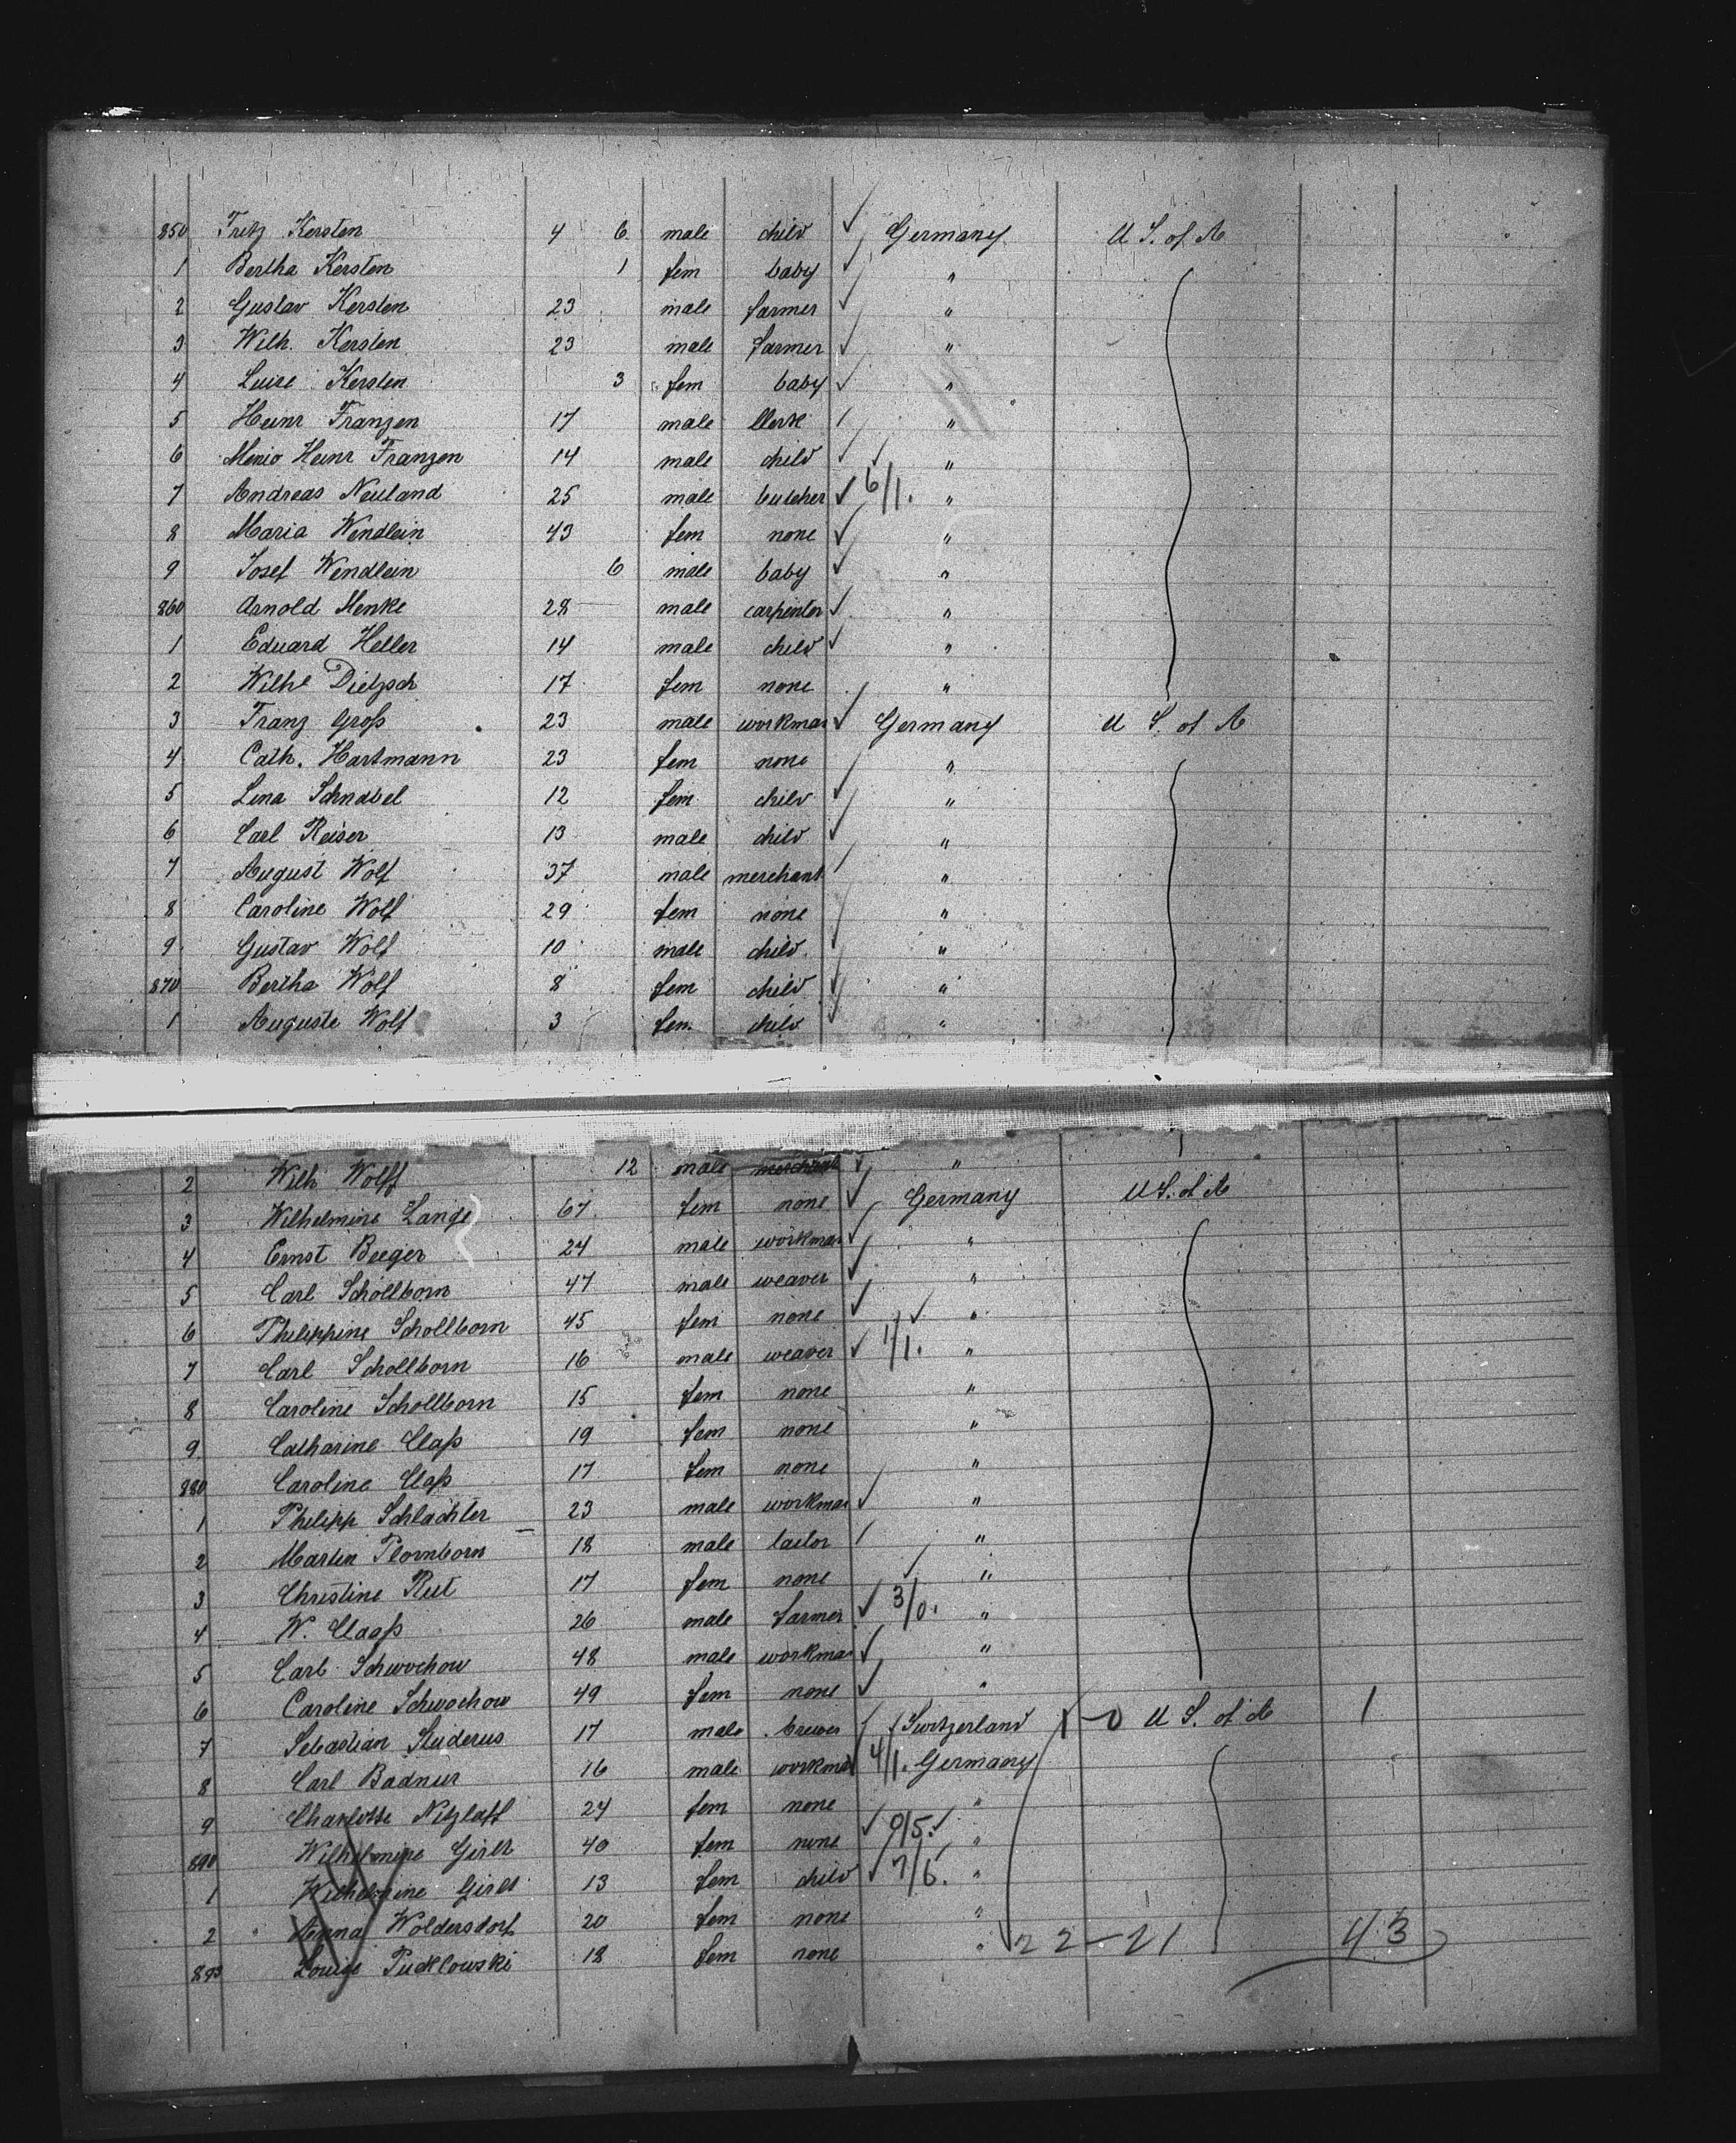 850 Fritz Kersten 4 6 male child ✓ Germany U S. of A
1 Bertha Kersten 1 fem baby ✓ "
2 Gustav Kersten 23 male farmer ✓ "
3 Wilh. Kersten 23 male farmer ✓ "
4 Luise Kersten 3 fem baby ✓ "
5 Heinr Franzen 17 male Clerk / "
6 Menio Heinr Franzen 14 male child ✓ ✓ "
7 Andreas Neuland 25 male butcher ✓ 6/1. "
8 Maria Wendlein 43 fem none ✓ "
9 Josef Wendlein 6 male baby ✓ "
860 Arnold Menke 28 male carpenter ✓ "
1 Eduard Heller 14 male child ✓ "
2 Wilhe Dietzsch 17 fem none "
3 Franz Groß 23 male workman ✓ Germany U S. of A
4 Cath. Hartmann 23 fem none "
5 Lina Schnabel 12 fem child ✓ "
6 Carl Reiser 13 male child ✓ "
7 August Wolf 37 male merchant / "
8 Caroline Wolf 29 fem none "
9 Gustav Wolf 10 male child "
870 Bertha Wolf 8 fem child ✓ "
1 Auguste Wolf 3 fem. child ✓ "
2 Wilh Wolff 12 male merchant ✓ "
3 Wilhelmine Lange 67 fem none ✓ Germany U S. of A
4 Ernst Beeger 24 male workman ✓ "
5 Carl Schollborn 47 male weaver ✓ "
6 Philippine Schollborn 45 fem none ✓ ✓ "
7 Carl Schollborn 16 male weaver ✓ 1/1. "
8 Caroline Schollborn 15 fem none "
9 Catharine Claß 19 fem none "
880 Caroline Claß 17 fem none "
1 Philipp Schlachter 23 male workman ✓ "
2 Martin Plornborn 18 male tailor / "
3 Christine Reit 17 fem none ✓ "
4 W. Claaß 26 male farmer ✓ 3/0. "
5 Carl Schwochow 48 male workman ✓ "
6 Caroline Schwochow 49 fem none ✓ "
7 Sebastian Studerus 17 male brewer / Switzerland 1-0 U S. of A 1
8 Carl Badnur 16 male workman 4/1. Germany
9 Charlotte Nitzlaff 24 fem none "
890 Wilhelmine Girlt 40 fem none ✓ 0/5. ✓ "
1 Wilhelmine Girlt 13 fem child ✓ 7/6. "
2 Anna Woldersdorf 20 fem none "
893 Louise Pudlowski 18 fem none " 22-21 43